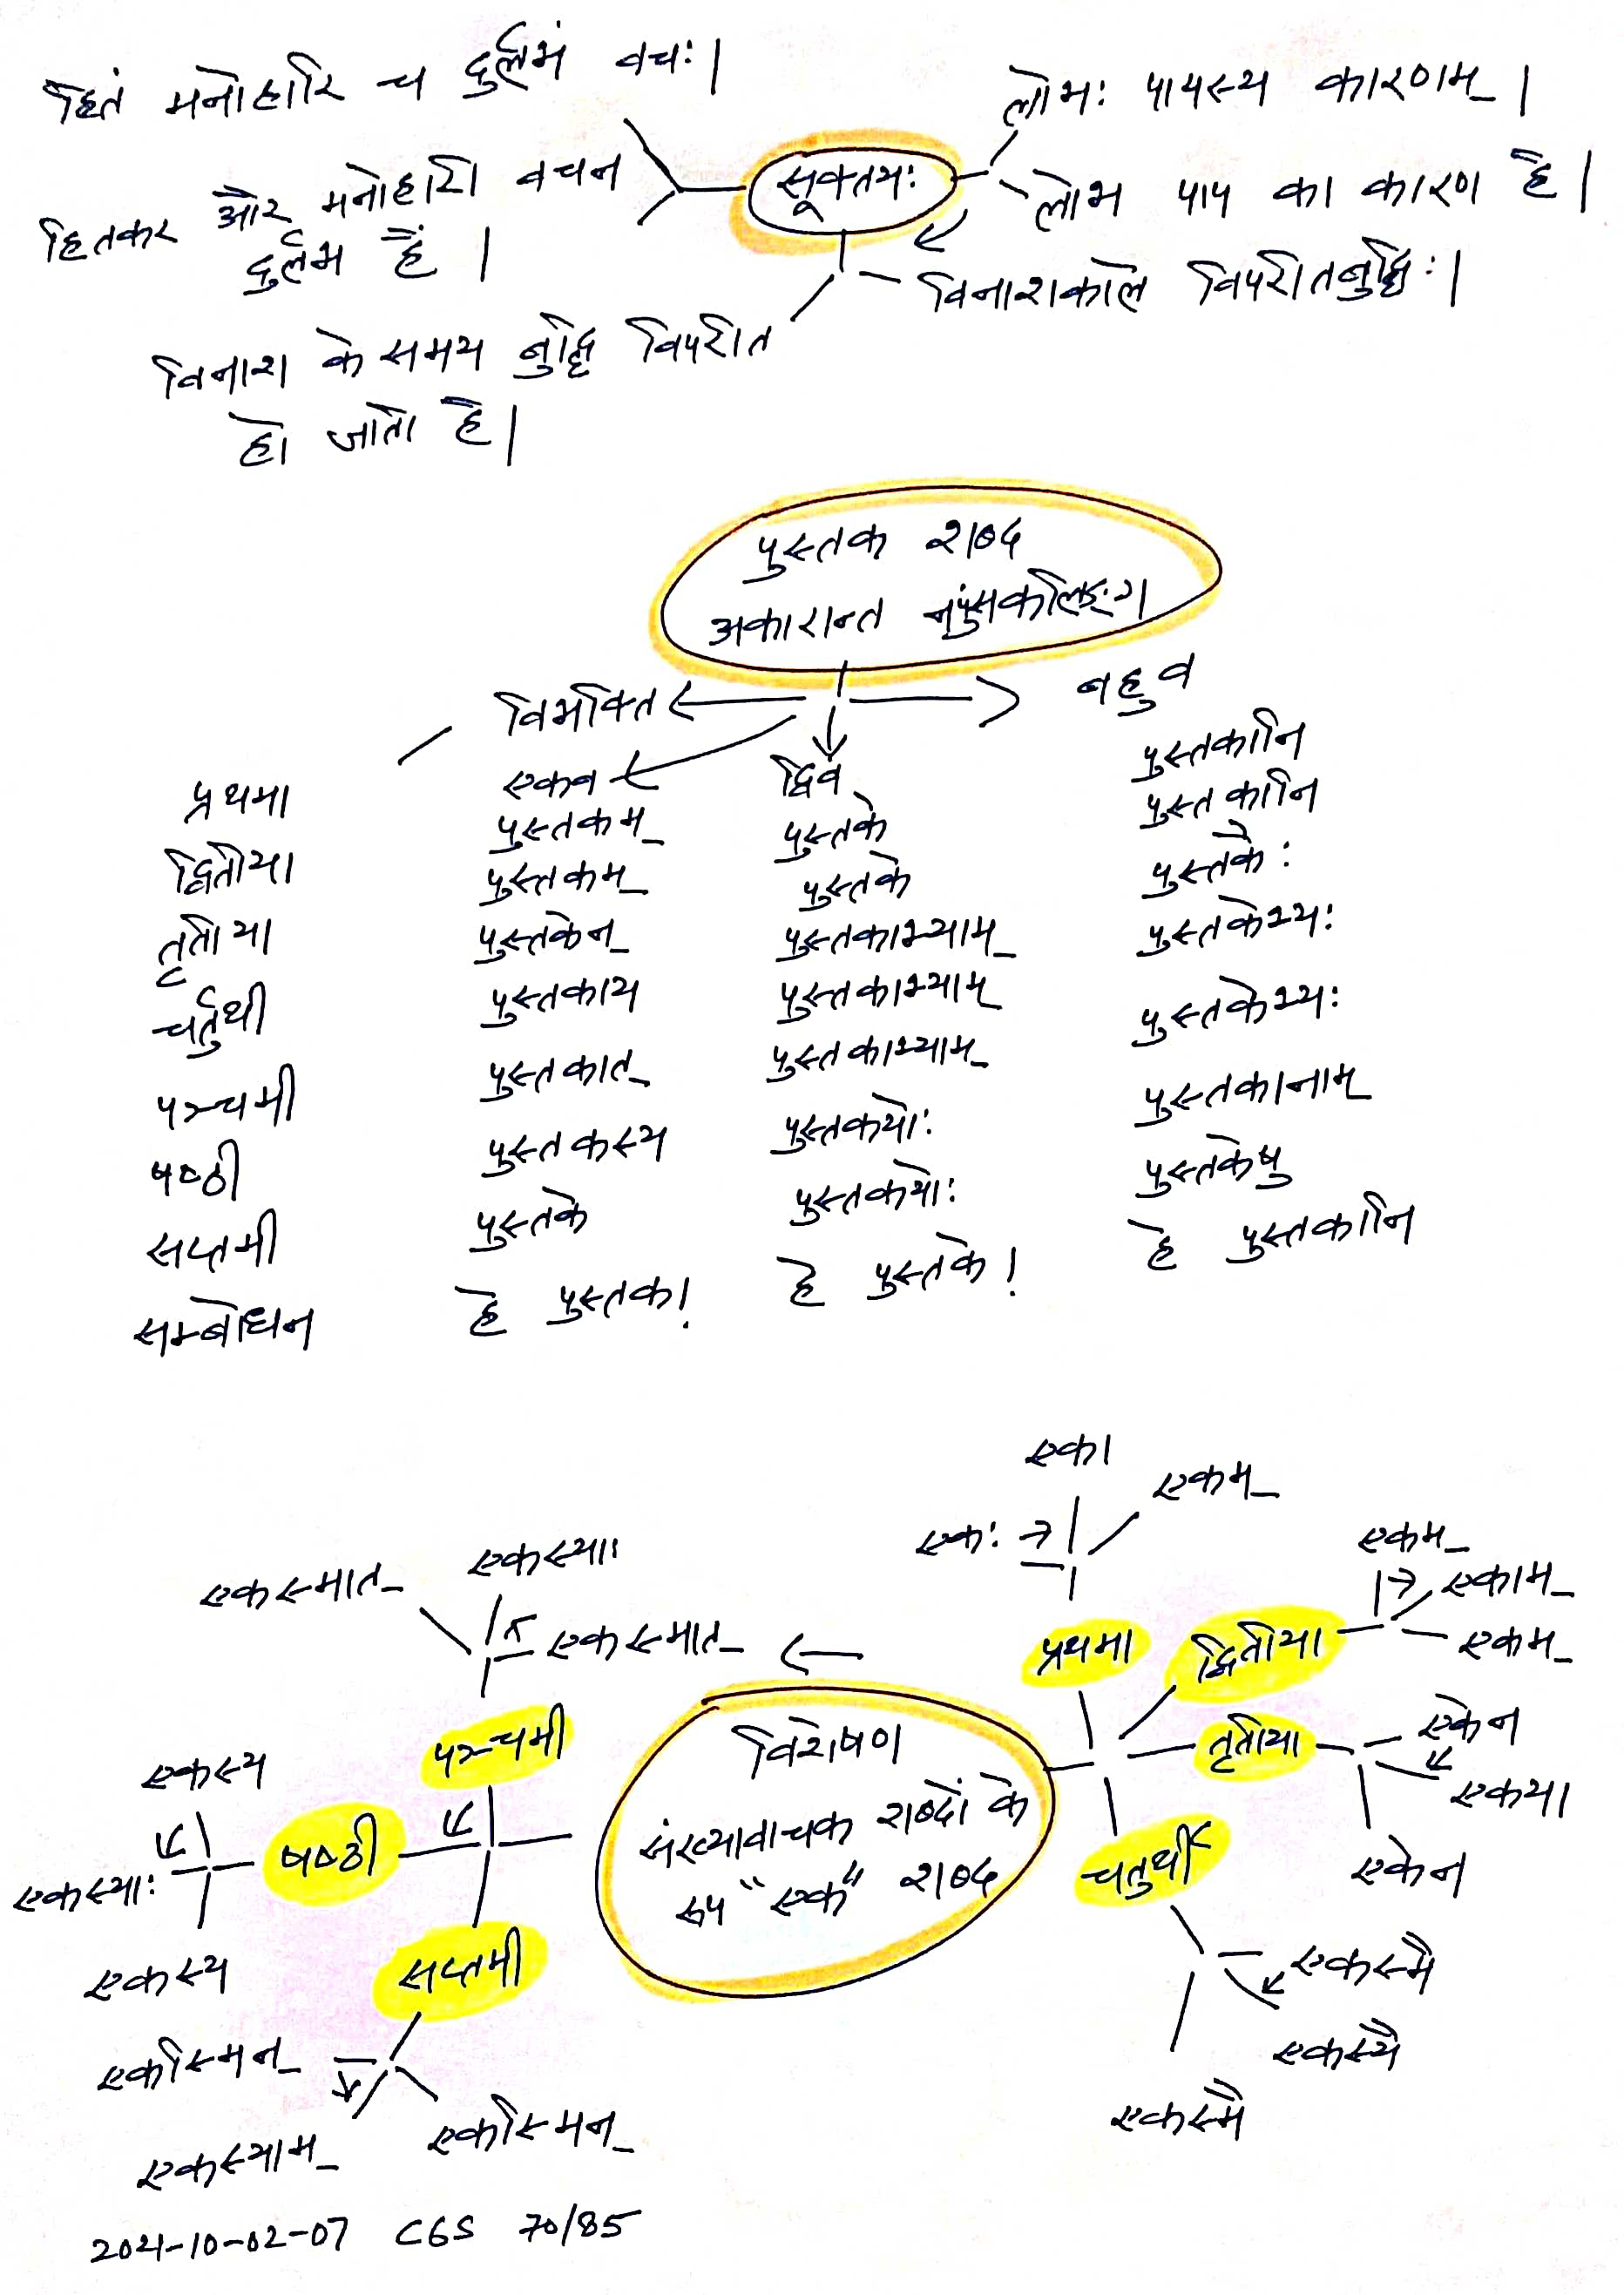 सूक्तयः
हितं मनोहारि च दुर्लभं वचः।
हितकर और मनोहारी वचन
दुर्लभ हैं।
लोभः पापस्य कारणम्।
लोभ पाप का कारण है।
विनाशकाले विपरीतबुद्धिः।
विनाश के समय बुद्धि विपरीत
हो जाती है।
पुस्तक शब्द
अकारान्त नपुंसकलिङ्ग
विभक्ति एकव द्विव बहुव
प्रथमा पुस्तकम् पुस्तके पुस्तकानि
द्वितीया पुस्तकम् पुस्तके पुस्तकानि
तृतीया पुस्तकेन् पुस्तकाभ्याम् पुस्तकैः
चर्तुथी पुस्तकाय पुस्तकाभ्याम् पुस्तकेभ्यः
पञ्चमी पुस्तकात् पुस्तकाभ्याम् पुस्तकेभ्यः
षष्ठी पुस्तकस्य पुस्तकयोः पुस्तकानाम्
सप्तमी पुस्तके पुस्तकयोः पुस्तकेषु
सम्बोधन हे पुस्तक! हे पुस्तके! हे पुस्तकानि
विशेषण
संख्यावाचक शब्दों के
रूप "एक" शब्द
प्रथमा
एकः
एका
एकम्
द्वितीया
एकम्
एकाम्
एकम्
तृतीया
एकेन
एकया
एकेन
चतुर्थी
एकस्मै
एकस्यै
एकस्मै
पञ्चमी
एकस्मात्
एकस्याः
एकस्मात्
षष्ठी
एकस्य
एकस्याः
एकस्य
सप्तमी
एकस्मिन्
एकस्याम्
एकस्मिन्
2021-10-02-07 CGS 70/85